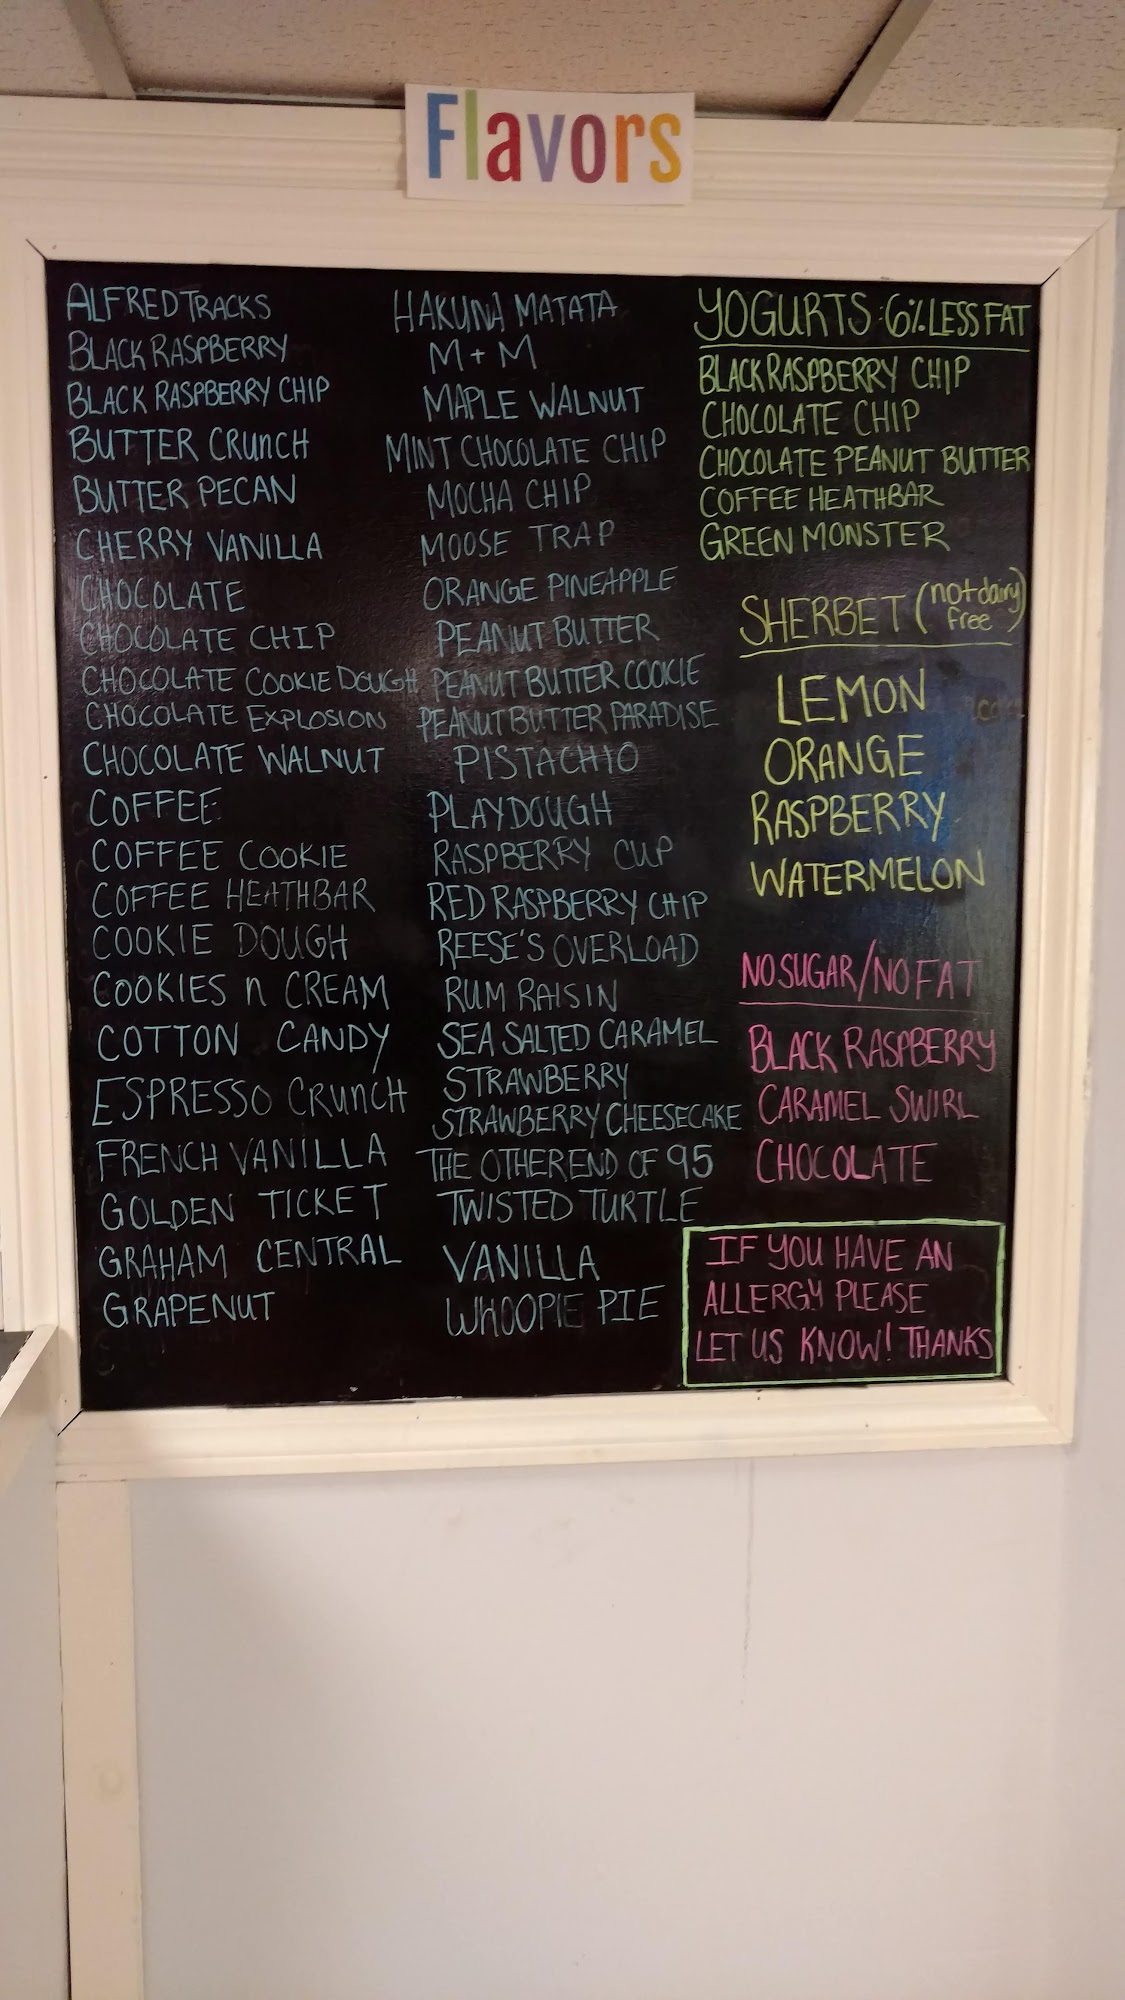 Flavors
ALFRED TRACKS
BLACK RASPBERRY
BLACK RASPBERRY CHIP
BUTTER CRUNCH
BUTTER PECAN
CHERRY VANILLA
CHOCOLATE
CHOCOLATE CHIP
CHOCOLATE COOKIE DOUGH
CHOCOLATE EXPLOSION
CHOCOLATE WALNUT
COFFEE
COFFEE COOKIE
COFFEE HEATHBAR
COOKIE DOUGH
COOKIES n CREAM
COTTON CANDY
ESPRESSO CRUNCH
FRENCH VANILLA
GOLDEN TICKET
GRAHAM CENTRAL
GRAPENUT
HAKUNA MATATA
M + M
MAPLE WALNUT
MINT CHOCOLATE CHIP
MOCHA CHIP
MOOSE TRAP
ORANGE PINEAPPLE
PEANUT BUTTER
PEANUT BUTTER COOKIE
PEANUT BUTTER PARADISE
PISTACHIO
PLAYDOUGH
RASPBERRY CUP
RED RASPBERRY CHIP
REESE'S OVERLOAD
RUM RAISIN
SEA SALTED CARAMEL
STRAWBERRY
STRAWBERRY CHEESECAKE
THE OTHER END OF 95
TWISTED TURTLE
VANILLA
WHOOPIE PIE
YOGURTS: 6% LESS FAT
BLACK RASPBERRY CHIP
CHOCOLATE CHIP
CHOCOLATE PEANUT BUTTER
COFFEE HEATHBAR
GREEN MONSTER
SHERBET (not dairy free)
LEMON
ORANGE
RASPBERRY
WATERMELON
NO SUGAR/NO FAT
BLACK RASPBERRY
CARAMEL SWIRL
CHOCOLATE
IF YOU HAVE AN
ALLERGY PLEASE
LET US KNOW! THANKS